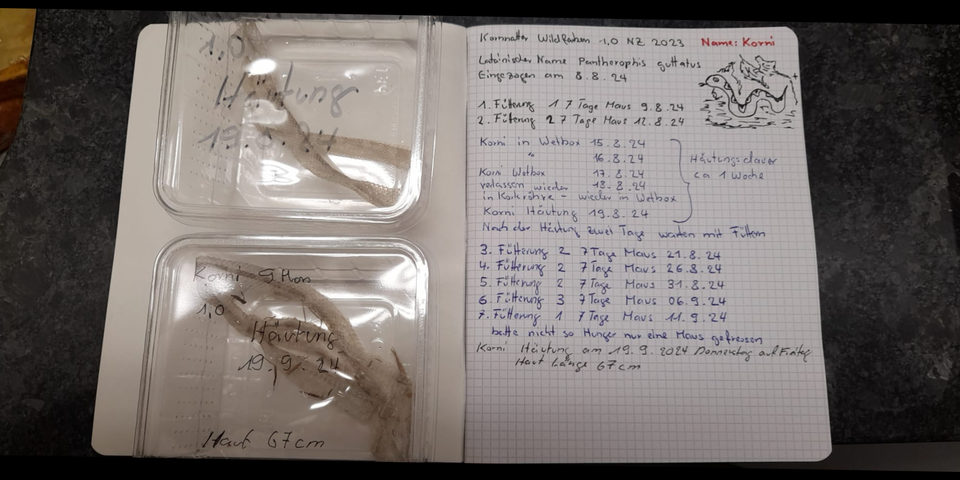 1,0
Häutung
Korni 9 Mon
1,0
Häutung
19.9.24
Haut 67cm
Kornnatter Wildfarben 1,0 NZ 2023 Name: Korni
Lateinischer Name Pantherophis guttatus
Eingezogen am 8.8.24
1. Fütterung 1 7 Tage Maus 9.8.24
2. Fütterung 2 7 Tage Maus 12.8.24
Korni in Wetbox 15.8.24
" 16.8.24
Korni Wetbox 17.8.24
verlassen wieder 18.8.24
in Korkröhre - wieder in Wetbox
Korni Häutung 19.8.24
Häutungsdauer
ca 1 Woche
Nach der Häutung zwei Tage warten mit Füttern
3. Fütterung 2 7 Tage Maus 21.8.24
4. Fütterung 2 7 Tage Maus 26.8.24
5. Fütterung 2 7 Tage Maus 31.8.24
6. Fütterung 3 7 Tage Maus 06.9.24
7. Fütterung 1 7 Tage Maus 11.9.24
hatte nicht so Hunger nur eine Maus gefressen
Korni Häutung am 19.9.2024 Donnerstag auf Freitag
Haut Länge 67cm